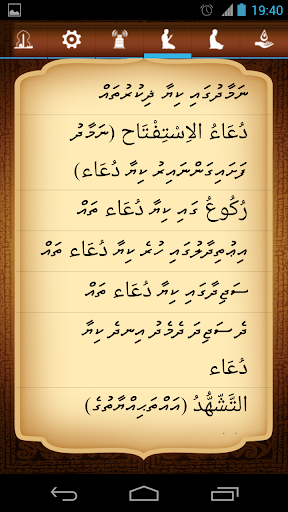 19:40
ނަމާދުގައި ކިޔާ ޛިކުރުތައް
دُعَاءُ الاِسْتِفْتَاح (ނަމާދު
ފަށައިގަންނައިރު ކިޔާ دُعَاء)
رُكُوعُ ގައި ކިޔާ دُعَاء ތައް
އިޢުތިދާލުގައި ހުރެ ކިޔާ دُعَاء ތައް
ސަޖިދާގައި ކިޔާ دُعَاء ތައް
ދެ ސަޖިދަ ދެމެދު އިނދެ ކިޔާ
دُعَاء
التَّشَهُّدُ (އައްތަޙިއްޔާތުގެ)